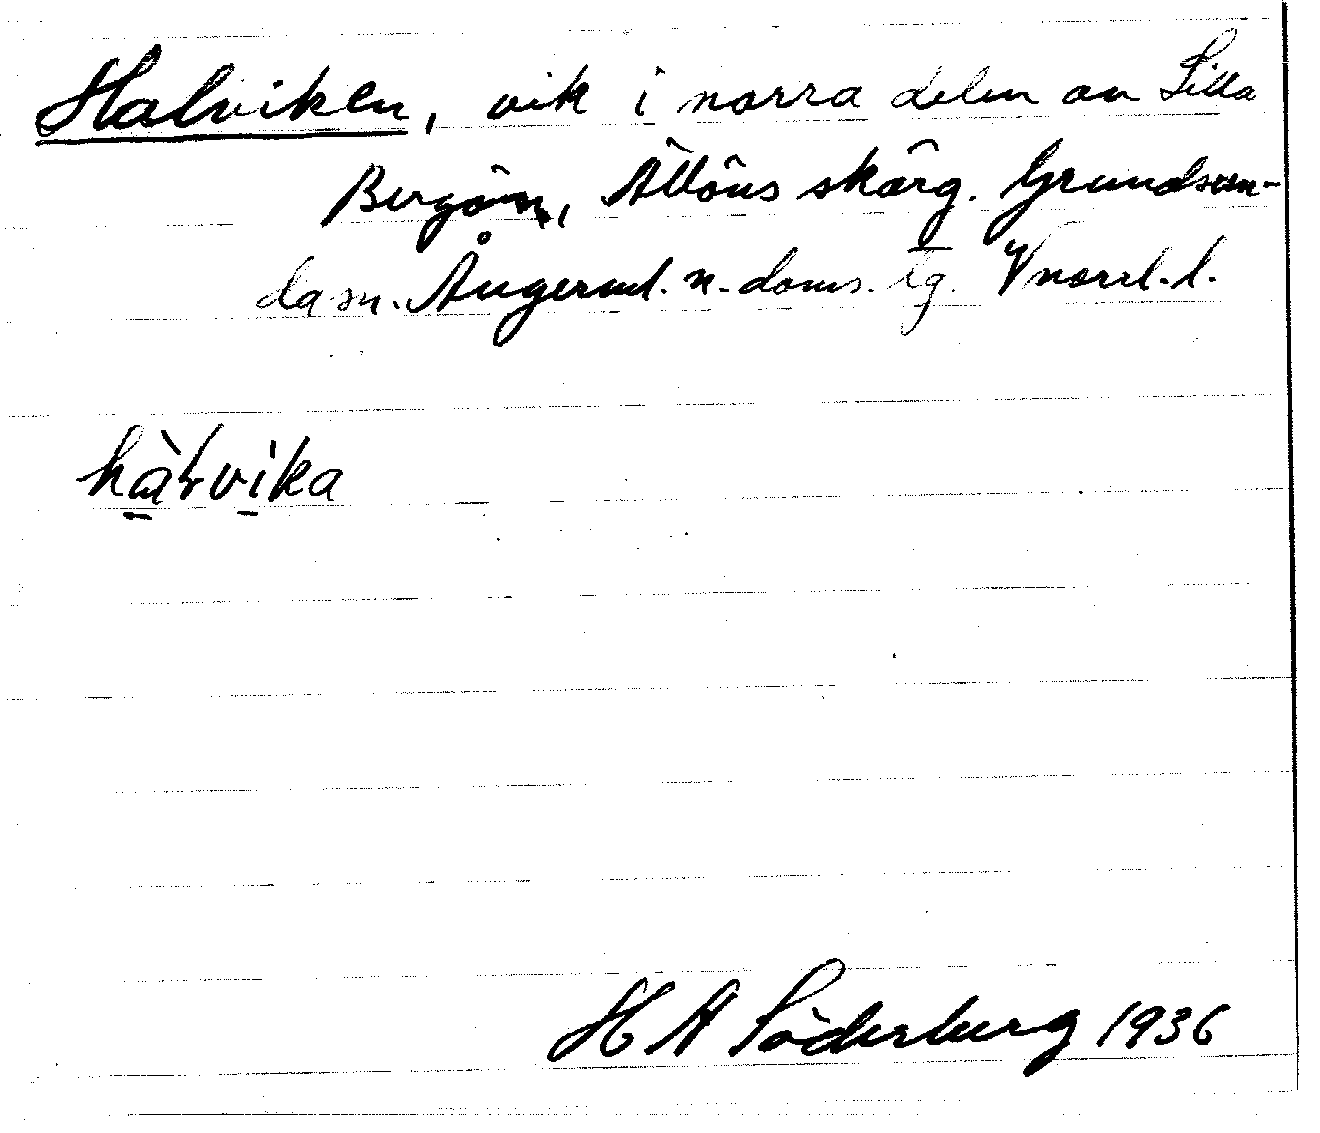 Halviken, vik i norra delen av Lilla
Bergön, Ållöns skärg. Grundsun-
da sn. Ångerml. n. doms. tg. Vnorrl. l.
hàlvika
H A Söderberg 1936